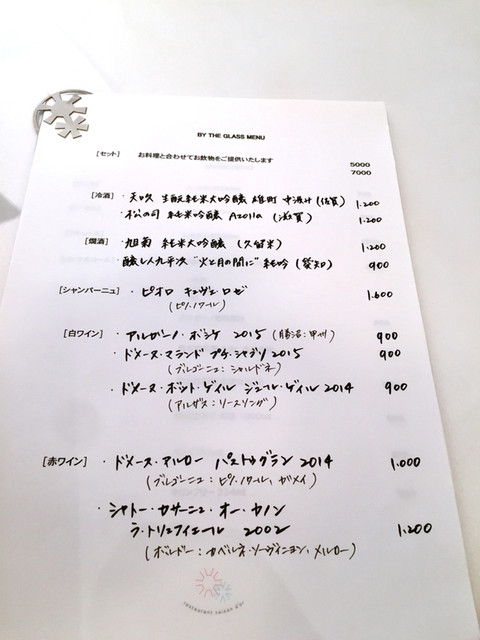 BY THE GLASS MENU
[セット] お料理と合わせてお飲物をご提供いたします 5000
7000
[冷酒] ・天吹 生酛純米大吟醸 雄町 中汲み (佐賀) 1.200
・松の司 純米吟醸 Azolla (滋賀) 1.200
[燗酒] ・旭菊 純米大吟醸 (久留米) 1.200
・醸し人九平次 "火と月の間に" 純吟 (愛知) 900
[シャンパーニュ] ・ピオロ キュヴェ・ロゼ 1.600
(ピノ・ノワール)
[白ワイン] ・アルガーノ・ボシケ 2015 (勝沼:甲州) 900
・ドメーヌ・マランド プティ・シャブリ 2015 900
(ブルゴーニュ:シャルドネ)
・ドメーヌ・ボット・ゲイル ジュール・ゲイル 2014 900
(アルザス:リースリング)
[赤ワイン] ・ドメーヌ・アルロー パストゥグラン 2014 1.000
(ブルゴーニュ:ピノ・ノワール、ガメイ)
・シャトー・カサーニュ・オー・カノン
ラ・トリュフィエール 2002 1.200
(ボルドー:カベルネ・ソーヴィニヨン、メルロー)
restaurant saison d'or